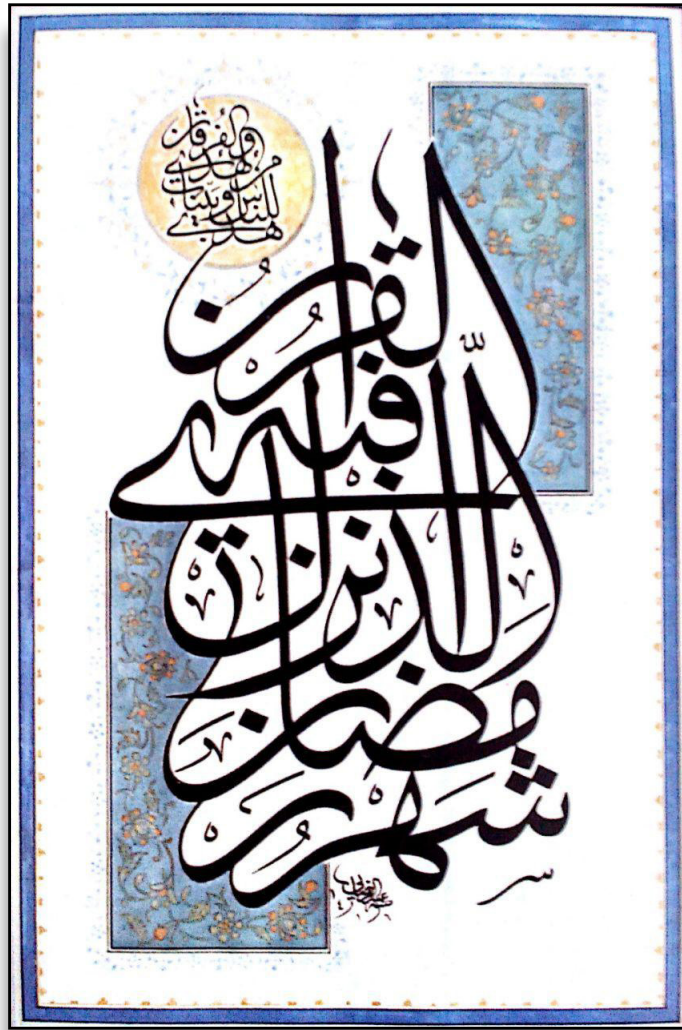 شَهر رمضان
الَّذی انزل
فیه القرُان
هدیً للناس و بیّنات
من الهدی
والفُرقان